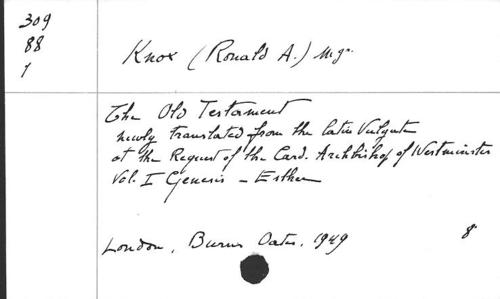 309
88
1
Knox (Ronald A.) Mgr.
The Old Testament
newly translated from the latin Vulgate
at the Request of the Card. Archbishop of Westminster
Vol. I Genesis - Esther
London, Burns Oates, 1949 8°